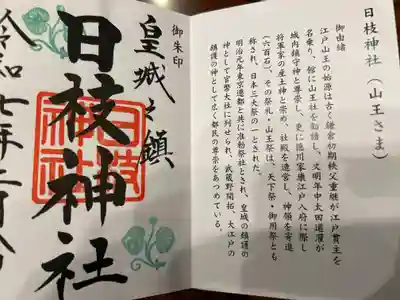 御朱印
皇城之鎮
日枝神社
令和七年二月八日
日枝神社（山王さま）
御由緒
江戸山王の始源は古く鎌倉初期秩父重継が江戸貫主を
名乗り、館に山王社を勧請し、文明年中太田道灌が
城内鎮守神と尊崇し、更に徳川家康江戸入府に際し
将軍家の産土神と崇め、社殿を造営し、神領を寄進
（六百石）、その祭礼・山王祭は、天下祭・御用祭とも
称され、日本三大祭の一とされた。
明治元年東京遷都と共に准勅祭社とされ、皇城の鎮護の
神として官幣大社に列せられ、武蔵野開拓、大江戸の
鎮護の神として広く都民の尊崇をあつめている。